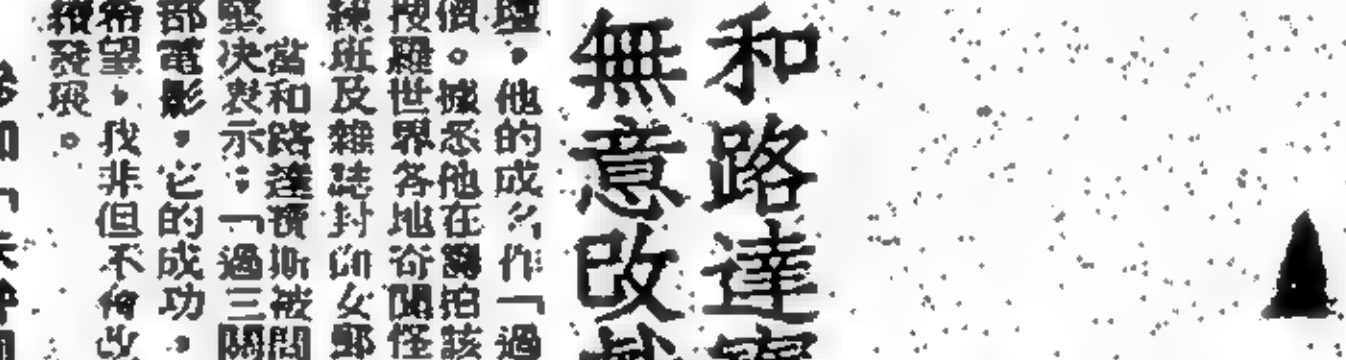 和路達寶
無意改
壇，他的成名作「過
價。據悉他在開拍該
搜羅世界各地奇聞怪
練班及雜誌封面女郎
當和路達寶斯被問
堅决表示：「過三關
部電影，它的成功，
希望，我非但不會改
續發展。